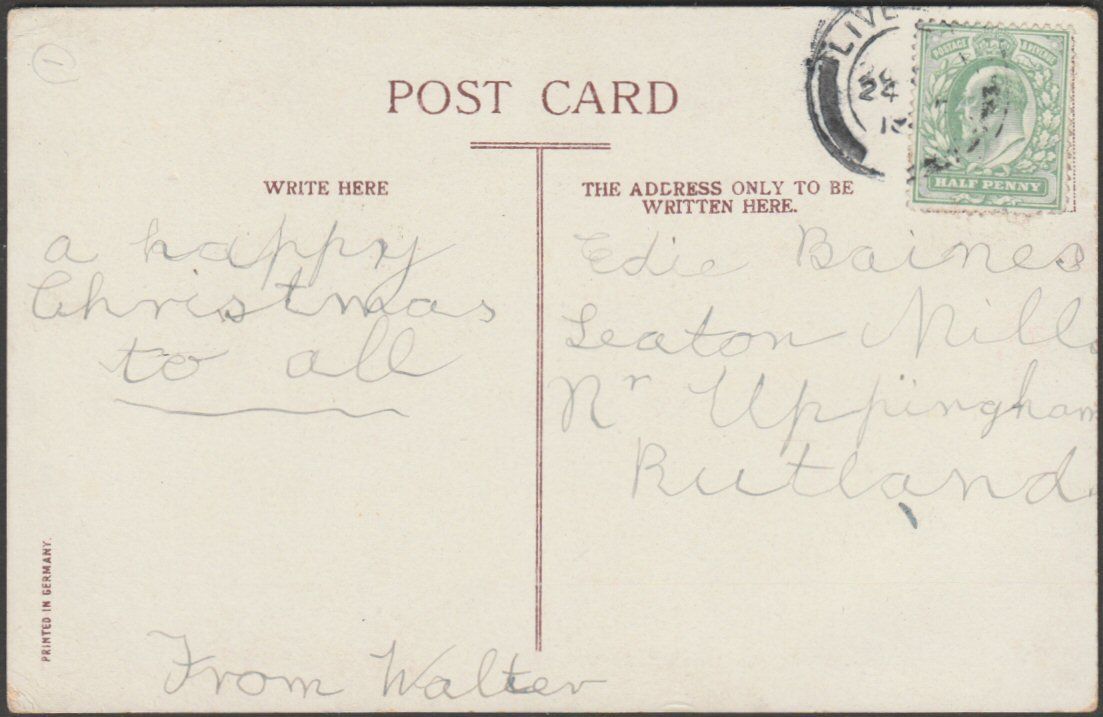 1
POST CARD
LIVE
24
WRITE HERE
THE ADDRESS ONLY TO BE
WRITTEN HERE.
POSTAGE REVENUE
HALF PENNY
a happy
Christmas
to all
From Walter
Edie Baines
Seaton Mills
Nr Uppingham
Rutland.
PRINTED IN GERMANY.